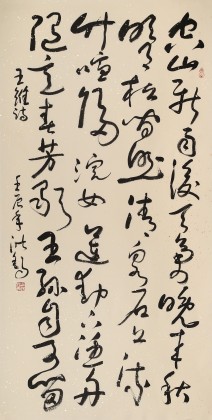 空山新雨後天氣晚來秋
明月松間照清泉石上流
竹喧歸浣女蓮動下漁舟
隨意春芳歇王孫自可留
王維詩 壬辰年